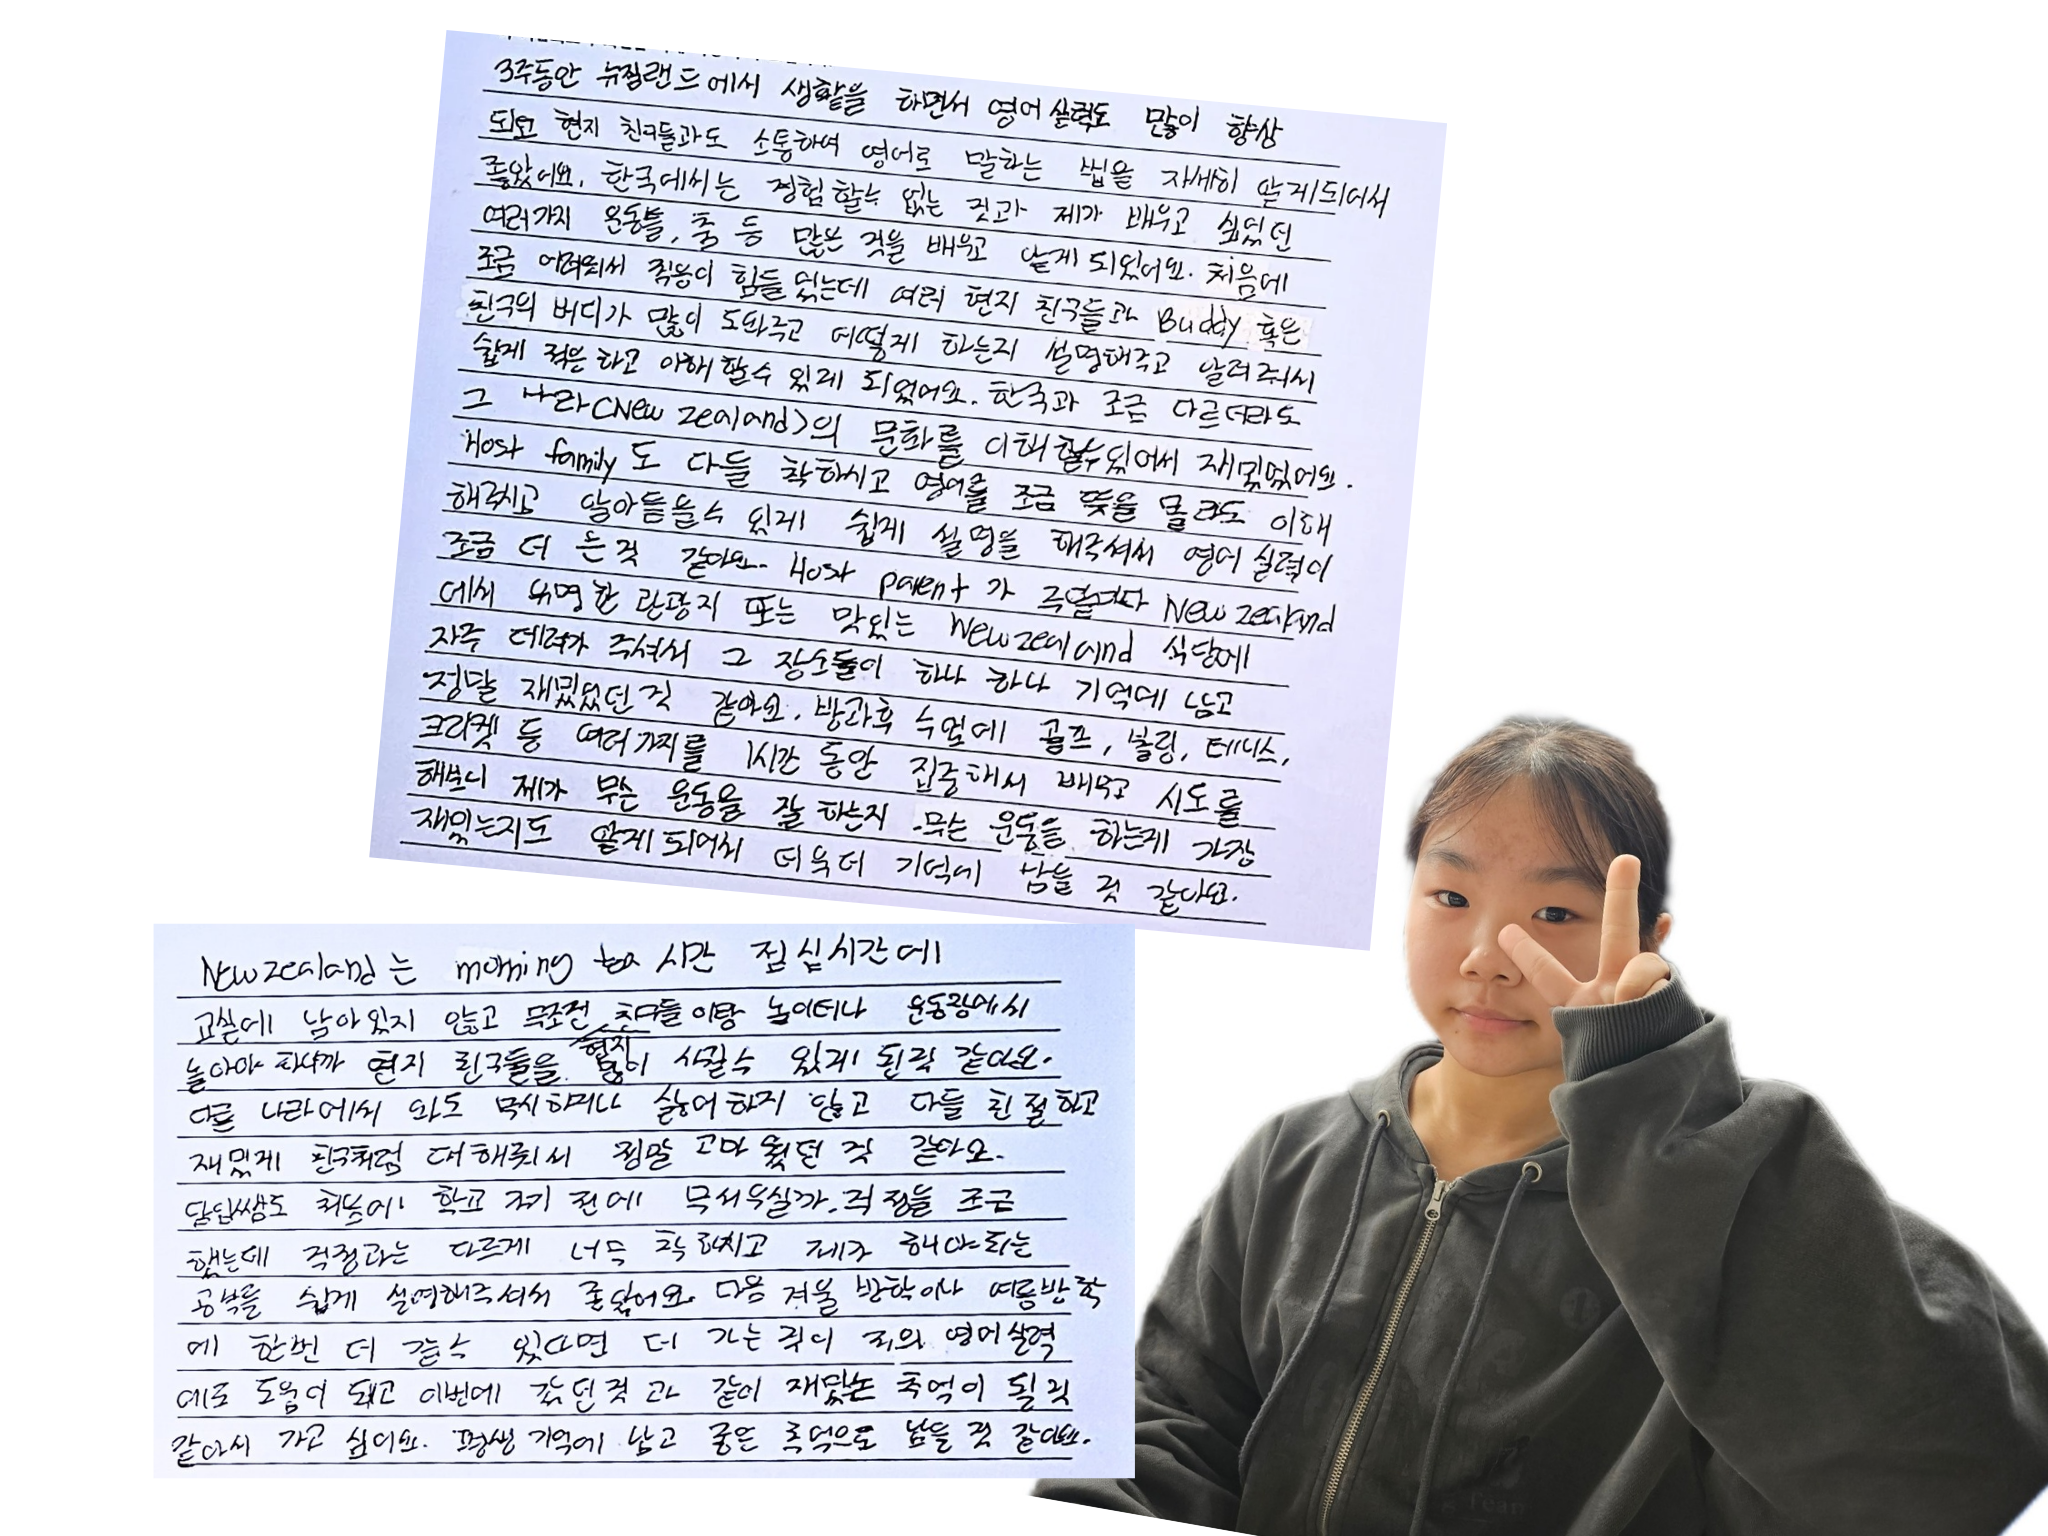 3주동안 뉴질랜드에서 생활을 하면서 영어 실력도 많이 향상
되고 현지 친구들과도 소통하여 영어로 말하는 법을 자세히 알게되어서
좋았어요. 한국에서는 경험할수 없는 것과 제가 배우고 싶었던
여러가지 운동들, 춤 등 많은 것을 배우고 알게 되었어요. 처음에
조금 어려워서 적응이 힘들었는데 여러 현지 친구들과 Buddy 혹은
친구의 버디가 많이 도와주고 어떻게 하는지 설명해주고 알려줘서
쉽게 적응하고 이해할수 있게 되었어요. 한국과 조금 다르더라도
그 나라(New zealand)의 문화를 이해할수있어서 재밌었어요.
Host family도 다들 착하시고 영어를 조금 뜻을 몰라도 이해
해주시고 알아들을수 있게 쉽게 설명을 해주셔서 영어 실력이
조금 더 는것 같아요. Host parent가 주말마다 New zealand
에서 유명한 관광지 또는 맛있는 New zealand 식당에
자주 데려가 주셔서 그 장소들이 하나 하나 기억에 남고
정말 재밌었던것 같아요. 방과후 수업에 골프, 볼링, 테니스,
크리켓 등 여러가지를 1시간 동안 집중해서 배우고 시도를
해보니 제가 무슨 운동을 잘 하는지 무슨 운동을 하는게 가장
재밌는지도 알게되어서 더욱더 기억에 남을 것 같아요.
New zealand는 morning tea 시간 점심시간에
교실에 남아있지 않고 무조건 친구들이랑 놀이터나 운동장에서
놀아야 하니까 현지 친구들을 많이 사귈수 있게 된것 같아요.
다른 나라에서 와도 무시하거나 싫어하지 않고 다들 친절하고
재밌게 친구처럼 대해줘서 정말 고마웠던 것 같아요.
담임쌤도 처음에 학교 가기 전에 무서우실까 걱정을 조금
했는데 걱정과는 다르게 너무 착하시고 제가 해야되는
공부를 쉽게 설명해주셔서 좋았어요. 다음 겨울 방학이나 여름방학
에 한번 더 갈수 있다면 더 가는 것이 저의 영어실력
에도 도움이 되고 이번에 갔던것과 같이 재밌는 추억이 될것
같아서 가고 싶어요. 평생 기억에 남고 좋은 추억으로 남을 것 같아요.